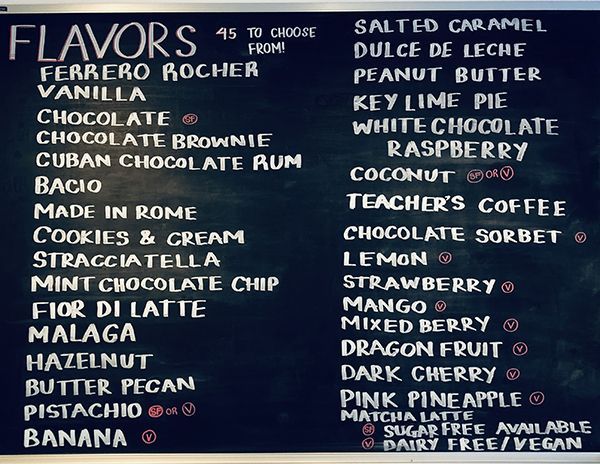 FLAVORS
45 TO CHOOSE
FROM!
FERRERO ROCHER
VANILLA
CHOCOLATE SF
CHOCOLATE BROWNIE
CUBAN CHOCOLATE RUM
BACIO
MADE IN ROME
COOKIES & CREAM
STRACCIATELLA
MINT CHOCOLATE CHIP
FIOR DI LATTE
MALAGA
HAZELNUT
BUTTER PECAN
PISTACHIO SF OR V
BANANA V
SALTED CARAMEL
DULCE DE LECHE
PEANUT BUTTER
KEY LIME PIE
WHITE CHOCOLATE
RASPBERRY
COCONUT SF OR V
TEACHER'S COFFEE
CHOCOLATE SORBET V
LEMON V
STRAWBERRY V
MANGO V
MIXED BERRY V
DRAGON FRUIT V
DARK CHERRY V
PINK PINEAPPLE V
MATCHA LATTE
SF SUGAR FREE AVAILABLE
V DAIRY FREE/VEGAN